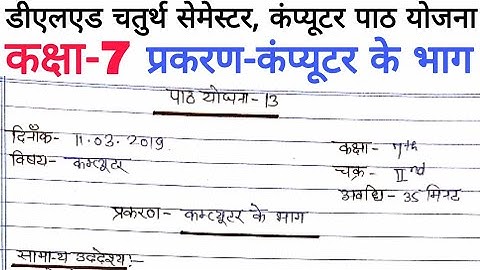 डीएलएड चतुर्थ सेमेस्टर, कंप्यूटर पाठ योजना
कक्षा-7 प्रकरण-कंप्यूटर के भाग
पाठ योजना - 13
दिनाँक- 11.03.2019
कक्षा- 7th
विषय- कम्प्यूटर
चक्र- IInd
अवधि- 35 मिनट
प्रकरण- कम्प्यूटर के भाग
सामान्य उद्देश्य:-